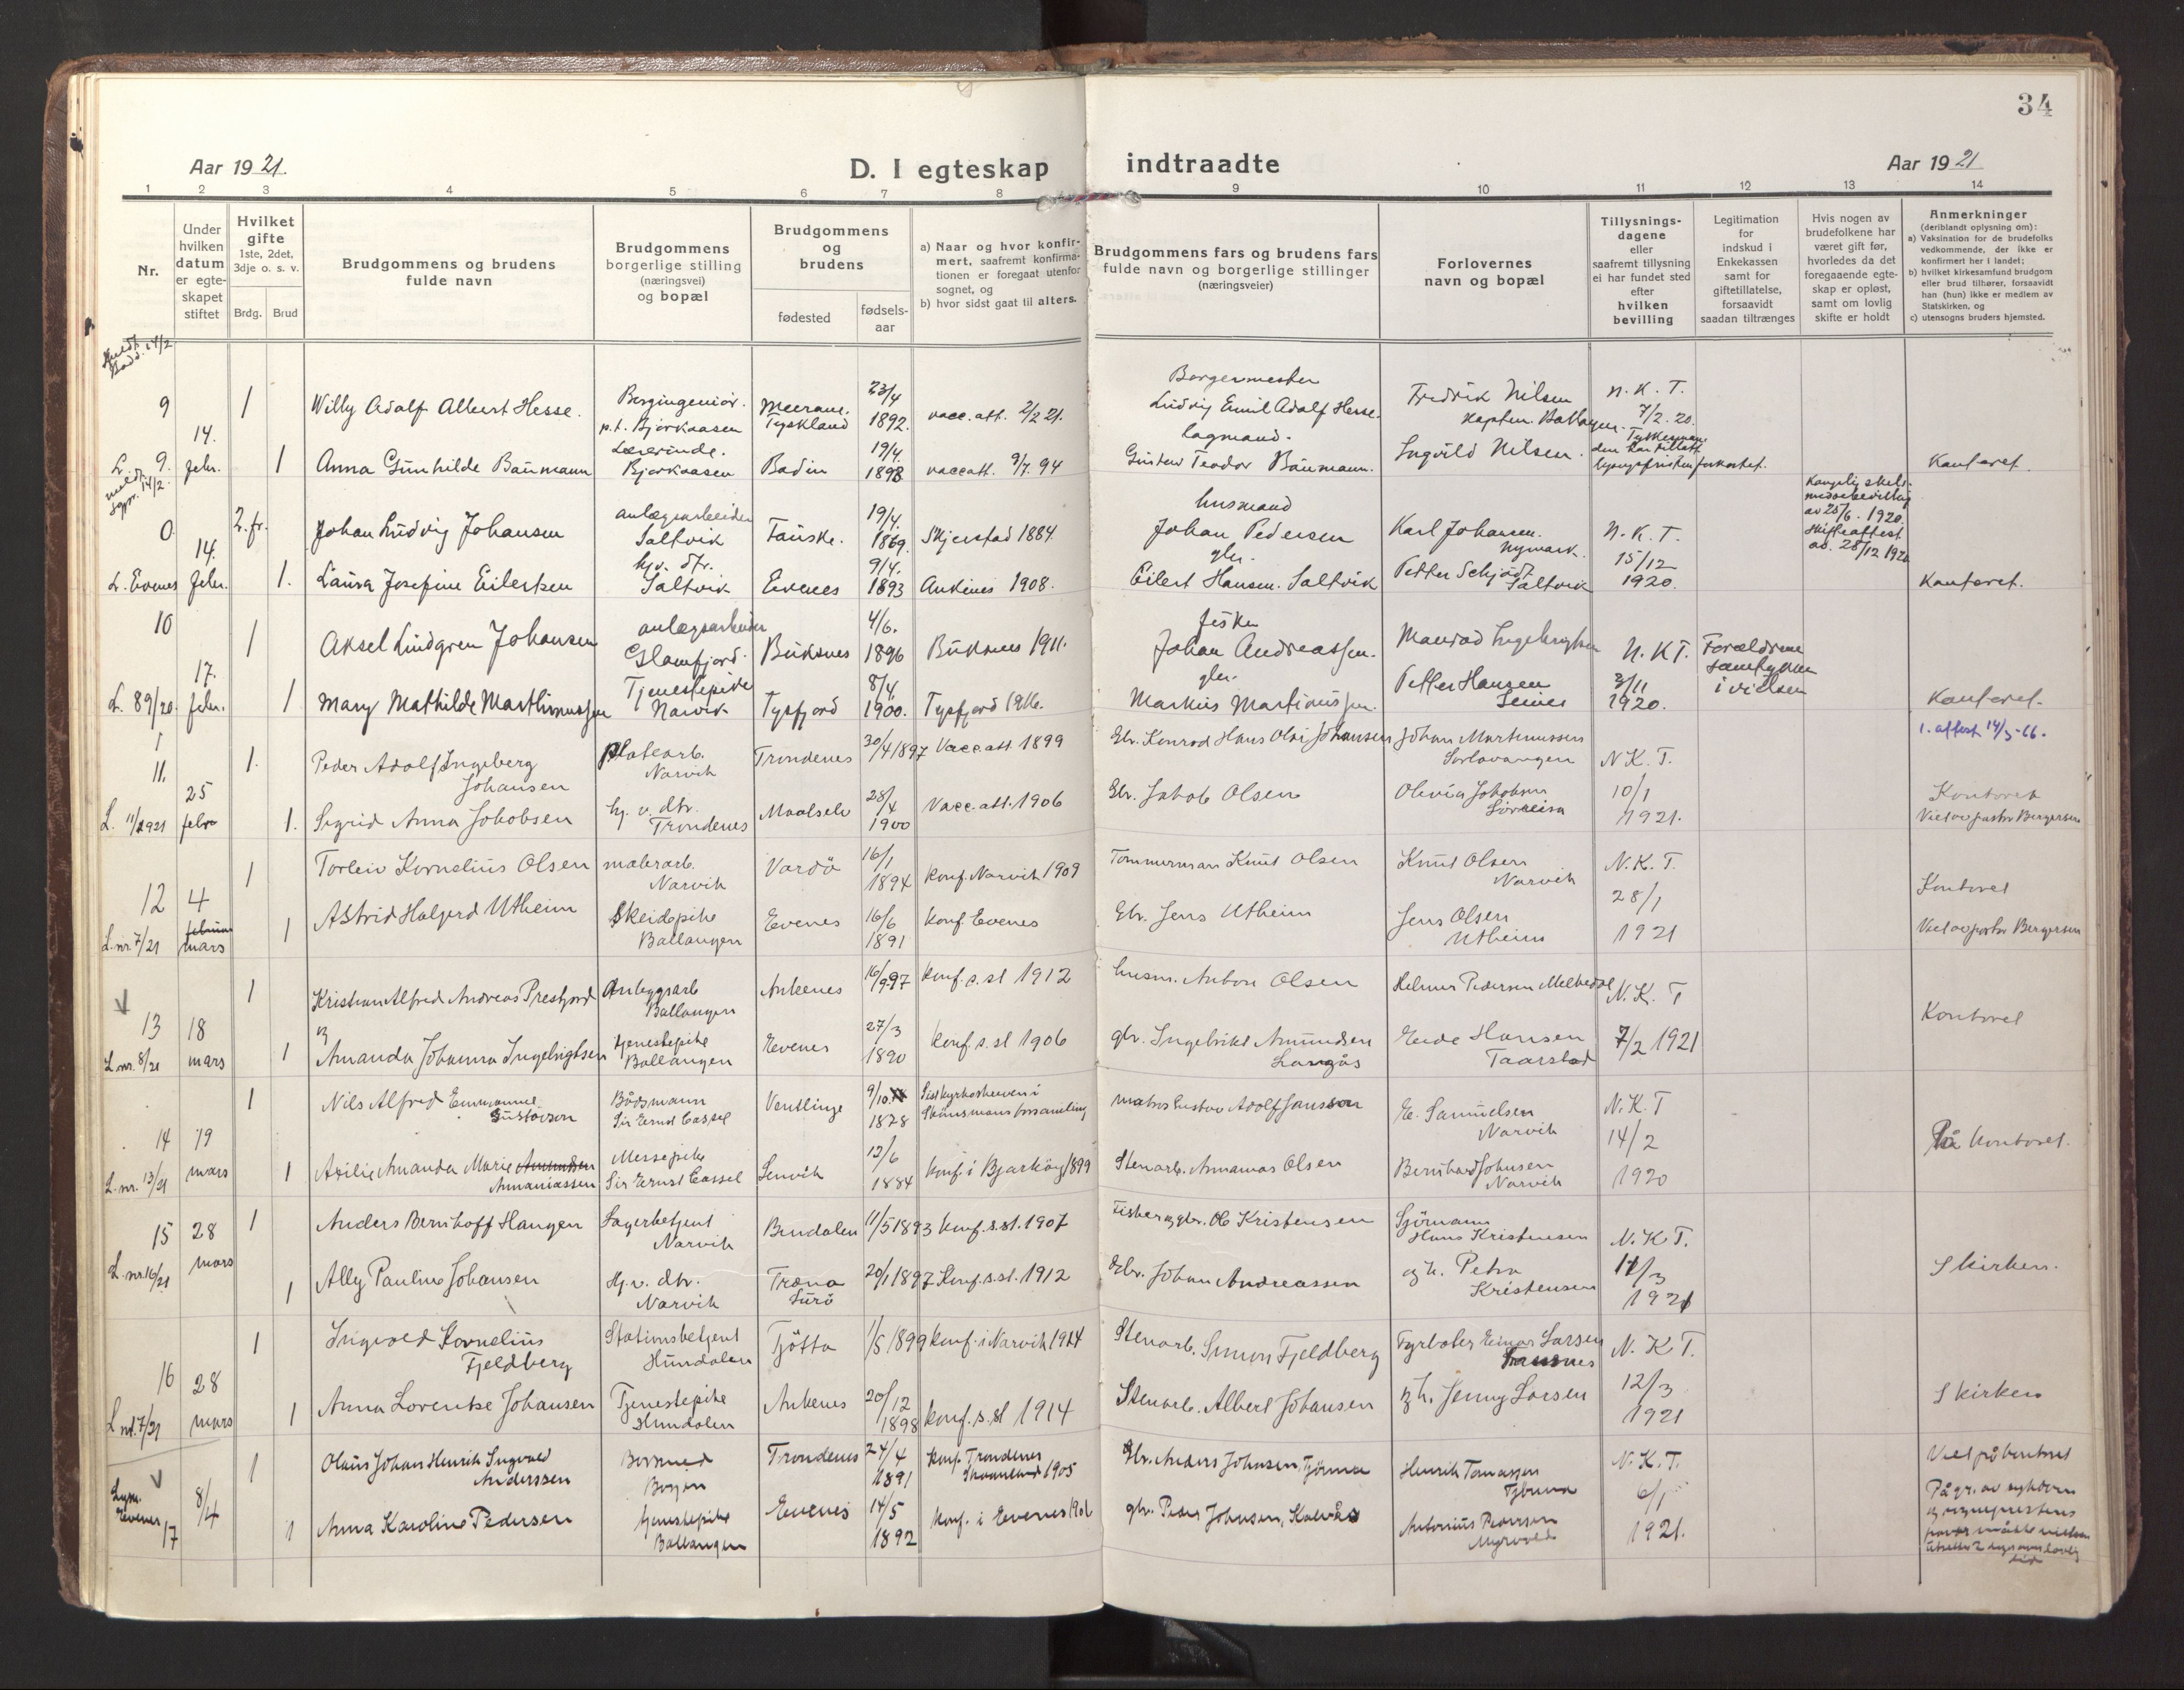 34
Aar 1921.
D. I egteskap indtraadte
Aar 1921
1 2 3 4 5 6 7 8 9 10 11 12 13 14
Nr.
Under hvilken datum er egteskapet stiftet
Hvilket gifte 1ste, 2det, 3dje o. s. v.
Brdg. Brud
Brudgommens og brudens fulde navn
Brudgommens borgerlige stilling (næringsvei) og bopæl
Brudgommens og brudens
fødested
fødsels-aar
a) Naar og hvor konfirmert, saafremt konfirmationen er foregaat utenfor sognet, og
b) hvor sidst gaat til alters.
Brudgommens fars og brudens fars fulde navn og borgerlige stillinger (næringsveier)
Forlovernes navn og bopæl
Tillysningsdagene eller saafremt tillysning ei har fundet sted efter hvilken bevilling
Legitimation for indskud i Enkekassen samt for giftetillatelse, forsaavidt saadan tiltrænges
Hvis nogen av brudefolkene har været gift før, hvorledes da det foregaaende egteskap er opløst, samt om lovlig skifte er holdt
Anmerkninger (deriblandt oplysning om):
a) Vaksination for de brudefolks vedkommende, der ikke er konfirmert her i landet;
b) hvilket kirkesamfund brudgom eller brud tilhører, forsaavidt han (hun) ikke er medlem av Statskirken, og
c) utensogns bruders hjemsted.
9 1 Willy Adolf Albert Hesse. Bergingeniör. p.t. Bjørkaasen Meerane. Tyskland 23/4 1892. vacc. att. 2/2 21. Borgermester Ludvig Emil Adolf Hesse. Fredrik Nilsen kaptein. Ballangen. N. K. T. 7/2. 20.
L. 9. 14. febr. 1 Anna Gunhilde Baumann Lærerinde. Bjørkaasen Bodin 19/4. 1893 vacc att. 9/7. 94 Lagmand. Gustav Teodor Baumann. Ingvild Nilsen. Kontoret.
0. 2. fr. Johan Ludvig Johansen anlægsarbeider Saltvik Fauske. 19/4. 1869. Skjerstad 1884 husmand Johan Pedersen Karl Johansen. Nymark. N. K. T. 15/12 1920. Kongelig skilsmissebevilling av 25/6. 1920. Skifteattest av. 28/12 1920
L. Evenes 14. febr. 1. Laura Josefine Eilertsen hjv. dtr. Saltvik Evenes 9/4. 1893 Ankenes 1908. gbr. Eilert Hansen. Saltvik Petter Schjødt Saltvik Kontoret.
10 1 Aksel Lindgren Johansen anlægsarbeider Glomfjord. Buksnes 4/6. 1896 Buksnes 1911. fisker Johan Andreassen. N. K T. 3/11 1920. Forældrene samtykker i vielsen
L. 89/20. 17. febr. 1 Mary Mathilde Marthinussen Tjenestepike Narvik Tysfjord 8/4. 1900. Tysfjord 1916. gbr. Markus Martinussen. Petter Hansen Kontoret.
1. attest 14/3-66.
11. 1. Peder Adolf Ingeberg Johansen Platearb. Narvik Trondenes 30/4 1897 Vacc. att 1899 Gbr. Konrad Hans Olai Johansen Johan Martinussen Sørlavangen N K. T. 10/1 1921.
L. 11/1921 25 febr 1. Sigrid Anna Jakobsen hj. v. dtr. Trondenes Maalselv 28/4 1900 Vacc. att. 1906 Gbr. Jakob Olsen Olivia Jakobsen Sørreisa Kontoret Viet av pastor Bergersen
12 4 1 Torleiv Kornelius Olsen malerarb. Narvik Vardö 16/1 1894 konf. Narvik 1909 Tømmermann Knut Olsen Knut Olsen Narvik N. K. T. 28/1 1921 Kontoret
L. nr. 7/21 mars 1 Astrid Halgerd Utheim Skeidepike Ballangen Evenes 16/6 1891 konf Evenes Gbr. Jens Utheim Jens Olsen Utheim Viet av pastor Bergersen
13 18 1 Kristian Alfred Andreas Presfjord og Anleggsarb Ballangen Ankenes 16/9 97 konf. s. st 1912 husm. Anton Olsen Helmer Pedersen Melkedal N. K. T 7/2 1921 Kontoret
L. nr. 8/21 mars 1 Amanda Johanna Ingebrigtsen tjenestepike Ballangen Evenes 27/3 1890 konf. s. st 1906 gbr. Ingebrikt Amundsen Langås Eide Hansen Taarstad
14 19 1 Nils Alfred Emmanuel Gustavson Båtsmann Sir Ernst Cassel Ventlinge 9/10 1878 matros Gustav Adolf Jansson E. Samuelsen Narvik N. K. T 14/2 1920 På kontoret.
L. nr. 13/21 mars 1 Axilie Amanda Marie Ananiassen Messepike Sir Ernst Cassel Lenvik 12/6 1884 konf. i Bjarköy 1899 Stenarb. Annanias Olsen Bernhard Johnsen Narvik
15 28 1 Anders Bernhoff Haugen Lagerbetjent Narvik Beudalen 11/5 1893 konf. s. st. 1907 Fisker og gbr. Ole Kristensen Sjömann Hans Kristensen N. K T. 11/3 1921
L. nr. 16/21 mars 1 Ally Pauline Johansen Hj. v. dtr. Narvik Træna Lurö 20/1 1897 Konf. s. st. 1912 Gbr. Johan Andreassen og h. Petra Kristensen I kirken.
16 28 1 Ingvald Kornelius Fjeldberg Stationsbetjent Hundalen Tjötta 1/5 1899 konf. i Narvik 1914 Stenarb. Simon Fjeldberg Fyrbøter Einar Larsen N. K T. 12/3 1921
L nr 17/21 mars 1 Anna Lorentse Johansen Tjenestepike Hundalen Ankenes 20/12 1898 konf. s. st 1914 Stenarb. Albert Johansen og h. Jenny Larsen I kirken
1 Olaus Johan Henrik Ingvald Anderssen Bogen Trondenes 24/4 1891 konf. Trondenes Skaanland 1905 Gbr. Anders Johnsen, Henrik Tomassen N. K. T. 6/1 1921. Viet på kontoret
Lysn. Evenes 17 8/4 1 Anna Karoline Pedersen tjenestepike Ballangen Evenes 14/5 1892 konf. i Evenes gbr. Peder Johnsen, Antonius Pedersen Myrvold